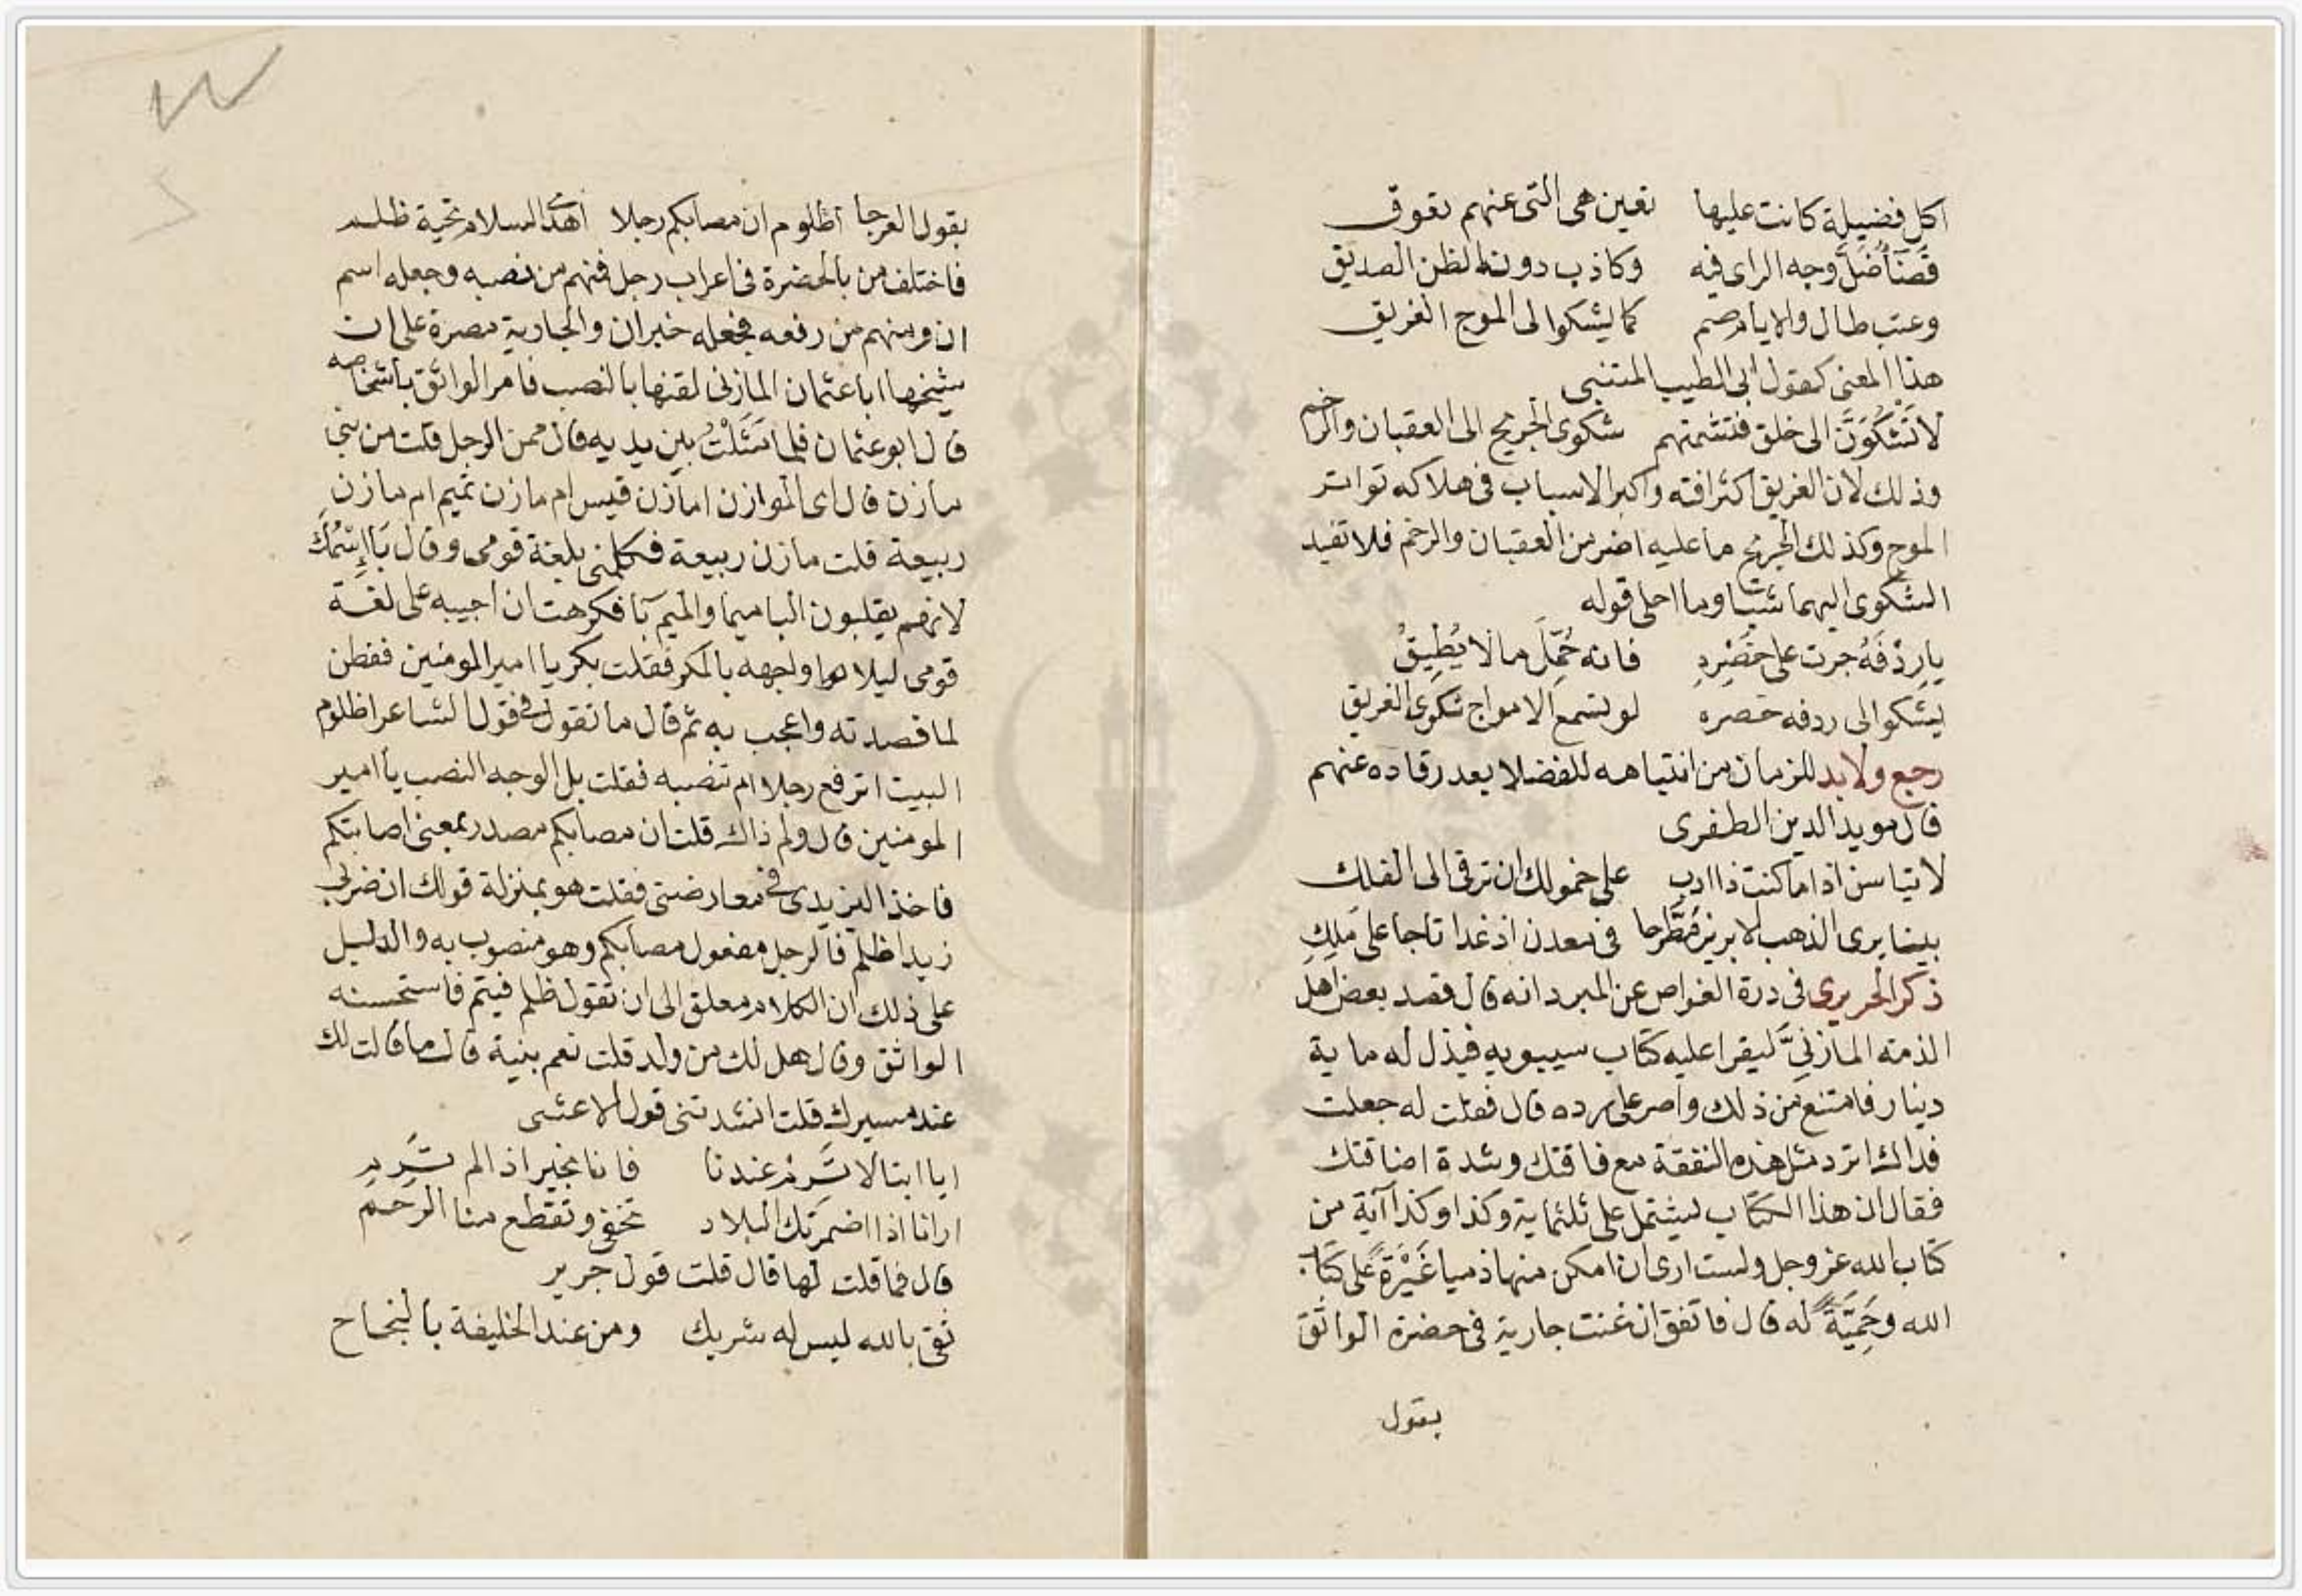 اكل فضيلة كانت عليها تعين هى التى عنهم تعوق
قصنا أضل وجه الراى فيه وكاذب دونه الظن الصديق
وعتب طال والايام صم كما يشكوا لى الموج الغريق
هذا المعنى كقول ابى الطيب المتنبى
لا تَشكُوَنَّ الى خلق فتشمتهم شكوى الجريح الى العقبان والرخم
وذلك لان الغريق اكثر افته واكبر الاسباب فى هلاكه تواتر
الموج وكذلك الجريح ما عليه اضر من العقبان والرخم فلا تفيد
الشكوى اليهما شيئا وما احلى قوله
يا رِدْفَهُ جرت على خَصْرِهِ فانه حُمِّلَ ما لا يُطِيقُ
يشكوا لى ردفه خصره لو تسمع الامواج شكوى الغريق
رجع ولابد للزمان من انتباهه للفضلا بعد رقاده عنهم
قال مويد الدين الطغرى
لا تياسن اذا ما كنت ذا ادب على خمولك ان ترقى الى الفلك
بينا يرى الذهب الابريز مُطَّرحا فى معدن اذ غدا تاجا على مَلِكِ
ذكر الحريرى فى درة الغواص عن المبرد انه قال قصد بعض اهل
الذمة المازنىَّ ليقرا عليه كتاب سيبويه فبذل له ماية
دينار فامتنع من ذلك واصر على رده قال فقلت له جعلت
فداك اترد مثل هذه النفقة مع فاقتك وشدة اضاقتك
فقال ان هذا الكتاب يشتمل على ثلثماية وكذا وكذا آية من
كتاب الله عز وجل ولست ارى ان امكن منها ذميا غَيْرَةً على كتاب
الله وحَمِيَّةً له قال فاتفق ان غنت جارية فى حضرة الواثق
بقول
بقول العرجا أظلوم ان مصابكم رجلا أهدى السلام تحية ظلم
فاختلف من بالحضرة فى اعراب رجل فمنهم من نصبه وجعله اسم
ان ومنهم من رفعه فجعله خبر ان والجارية مصرة على ان
شيخها ابا عثمان المازنى لقنها بالنصب فامر الواثق باشخاصه
قال ابو عثمان فلما مَثَلْتُ بين يديه قال ممن الرجل قلت من بنى
مازن قال اى الموازن امازن قيس ام مازن تميم ام مازن
ربيعة قلت مازن ربيعة فكلمنى بلغة قومى وقال بَا اِسْمُكَ
لانهم يقلبون البا ميما والميم بآ فكرهت ان اجيبه على لغة
قومى ليلا اواجهه بالمكر فقلت بكر يا امير المومنين ففطن
لما قصدته واعجب به ثم قال ما تقول فى قول الشاعر اظلوم
البيت اترفع رجلا ام تنصبه فقلت بل الوجه النصب يا امير
المومنين قال ولم ذاك قلت ان مصابكم مصدر بمعنى اصابتكم
فاخذ اليزيدى فى معارضتى فقلت هو بمنزلة قولك ان ضربك
زيدا ظلم فالرجل مفعول مصابكم وهو منصوب به والدليل
على ذلك ان الكلام معلق الى ان تقول ظلم فيتم فاستحسنه
الواثق وقال هل لك من ولد قلت نعم بنية قال ما قالت لك
عند مسيرك قلت انشدتنى قول الاعشى
ايا ابتا لا تَرِمْ عندنا فانا بخير اذا لم تَرِمِ
ارانا اذا اضمرتك البلاد نجفى وتقطع منا الرحم
قال فما قلت لها قال قلت قول جرير
ثقى بالله ليس له شريك ومن عند الخليفة بالنجاح